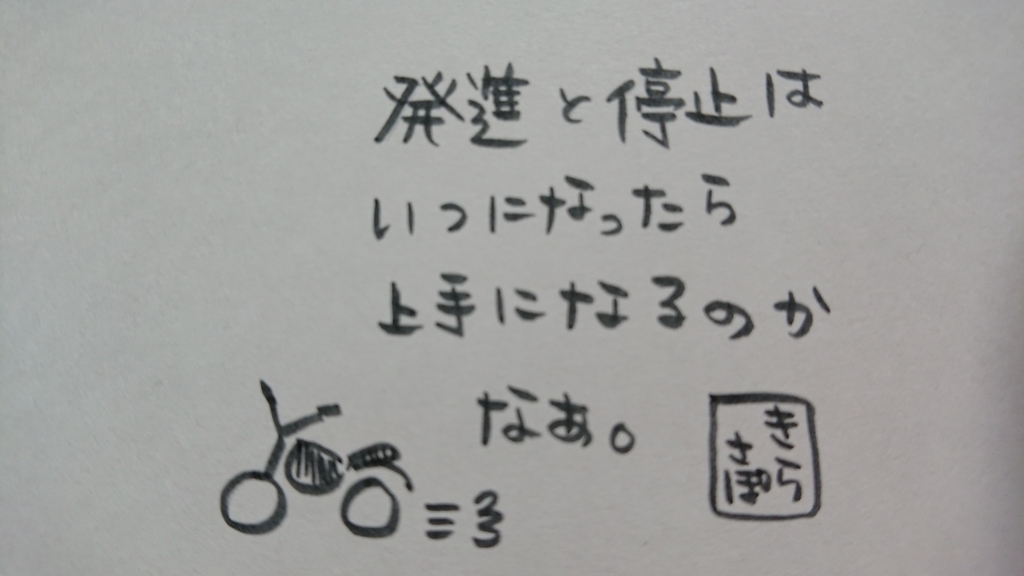 発進と停止は
いつになったら
上手になるのか
なあ。
きら
さぽ